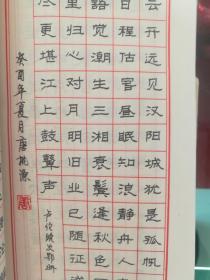 云开远见汉阳城犹是孤帆
日程估客昼眠知浪静舟人
語觉潮生三湘衰鬓逢秋色
里归心对月明旧业已随征
尽更堪江上鼓鼙声
卢纶晚次鄂州
癸酉年夏月唐